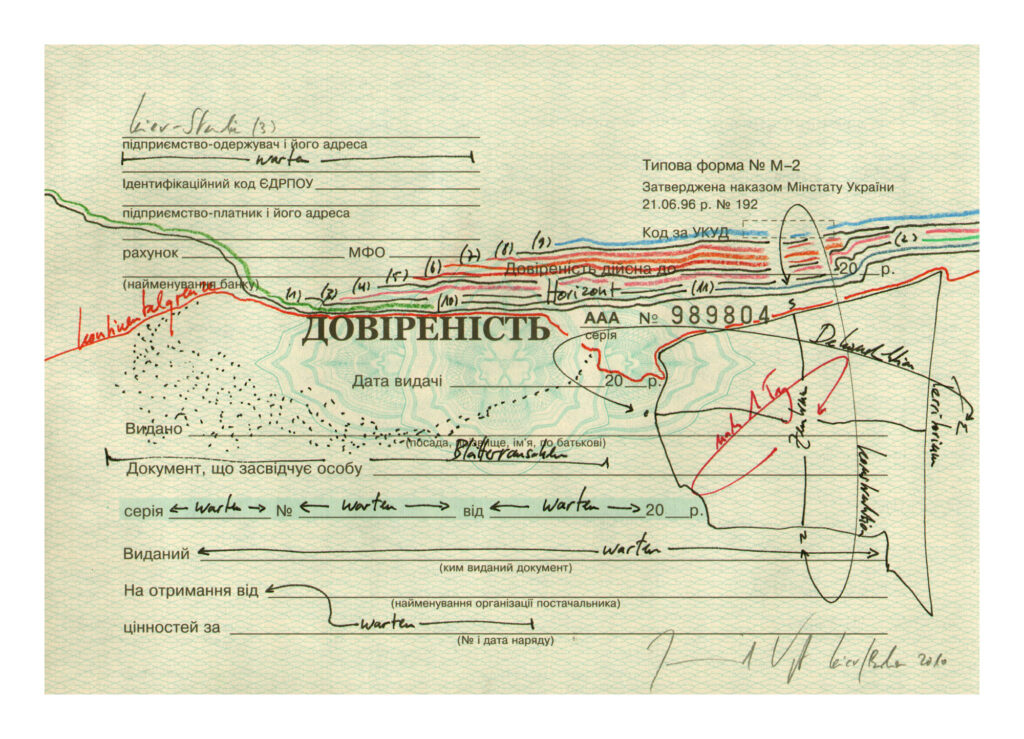 Kiev-Studie (3)
підприємство-одержувач і його адреса
warten
Типова форма № М–2
Ідентифікаційний код ЄДРПОУ
Затверджена наказом Мінстату України
21.06.96 р. № 192
підприємство-платник і його адреса
Код за УКУД
рахунок МФО
(1) (2) (4) (5) (6) (7) (8) (9) (2)
Довіреність дійсна до 20 р.
(найменування банку)
Kontinentalgrenze
(10) Horizont (11)
ДОВІРЕНІСТЬ
ААА № 989804
серія
S
Дата видачі 20 р.
Territorium
mal 1 Tag
Видано
(посада, прізвище, ім'я, по батькові)
Konstruktion
Документ, що засвідчує особу
серія warten № warten від warten 20 р.
N
Виданий warten
(ким виданий документ)
На отримання від
(найменування організації постачальника)
цінностей за warten
(№ і дата наряду)
2010